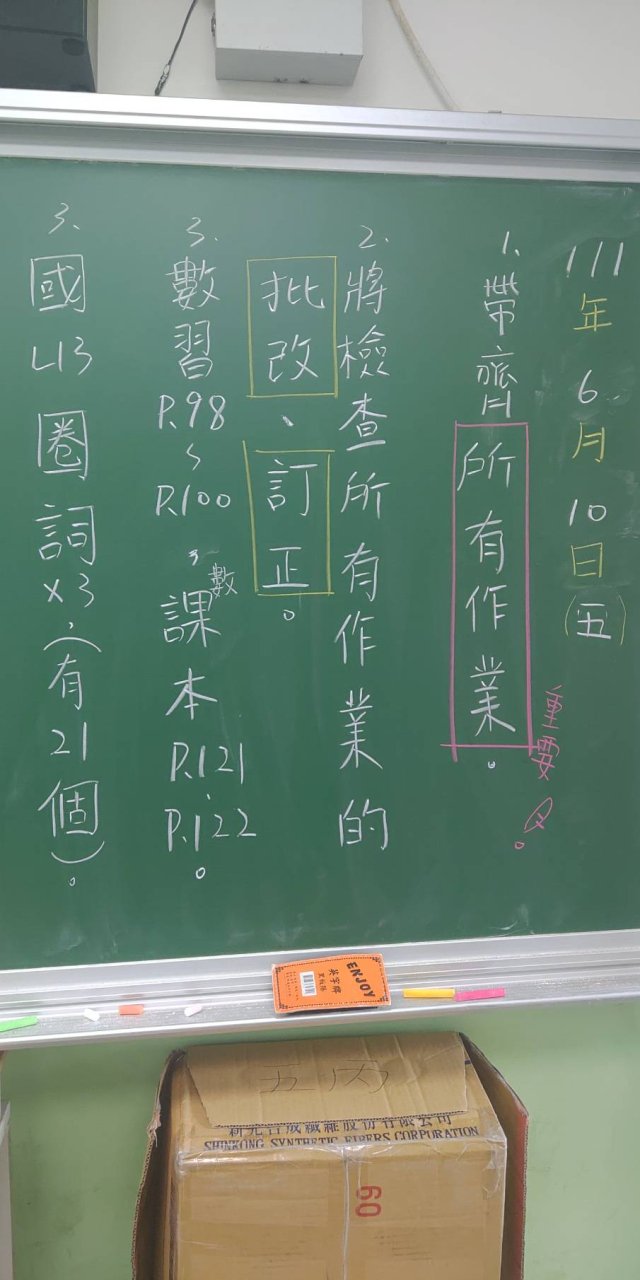 111年 6月 10日(五)
1.帶齊所有作業。
重要
2.將檢查所有作業的
批改、訂正。
3.數習P.98~P.100,數課本P.121.P.122。
3.國L13圈詞×3,(有21個)。
ENJOY
五丙
新光合成纖維股份有限公司
SHINKONG SYNTHETIC FIBERS CORPORATION
09